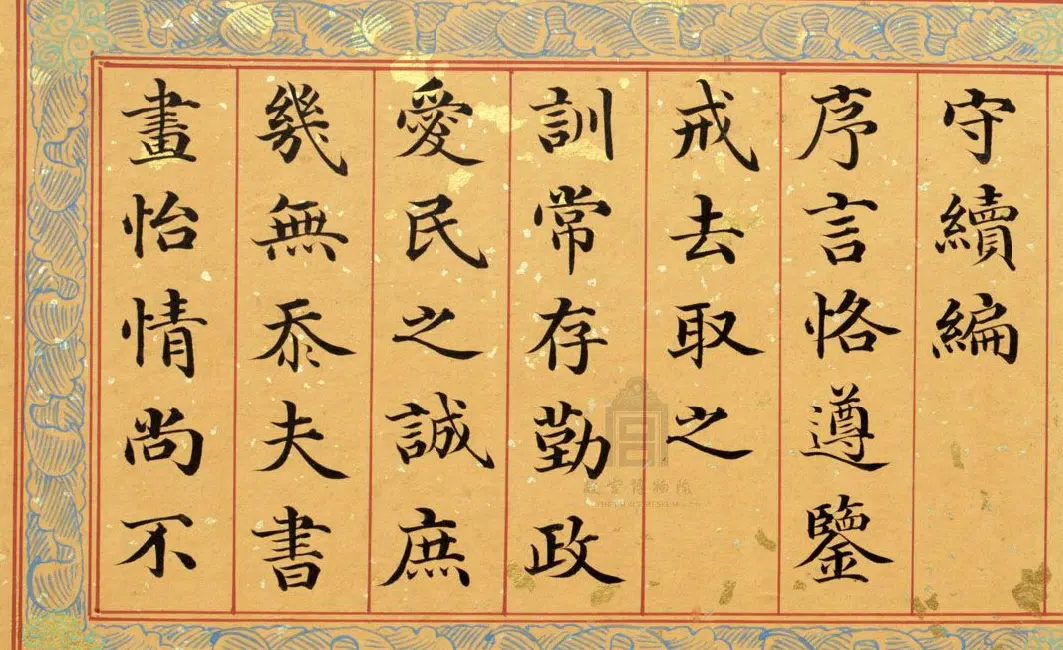 守續編
序言恪遵鑒
戒去取之
訓常存勤政
愛民之誠庶
幾無忝夫書
畫怡情尚不
故宮博物院